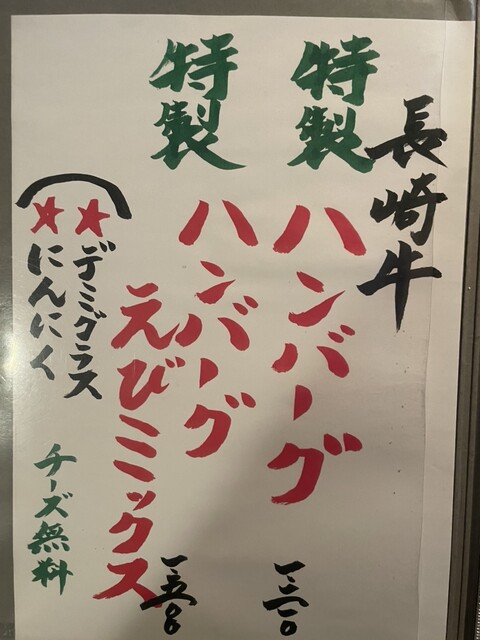 長崎牛
特製
ハンバーグ
特製
ハンバーグ
えびミックス
一五〇〇
★デミグラス
★にんにく
チーズ無料